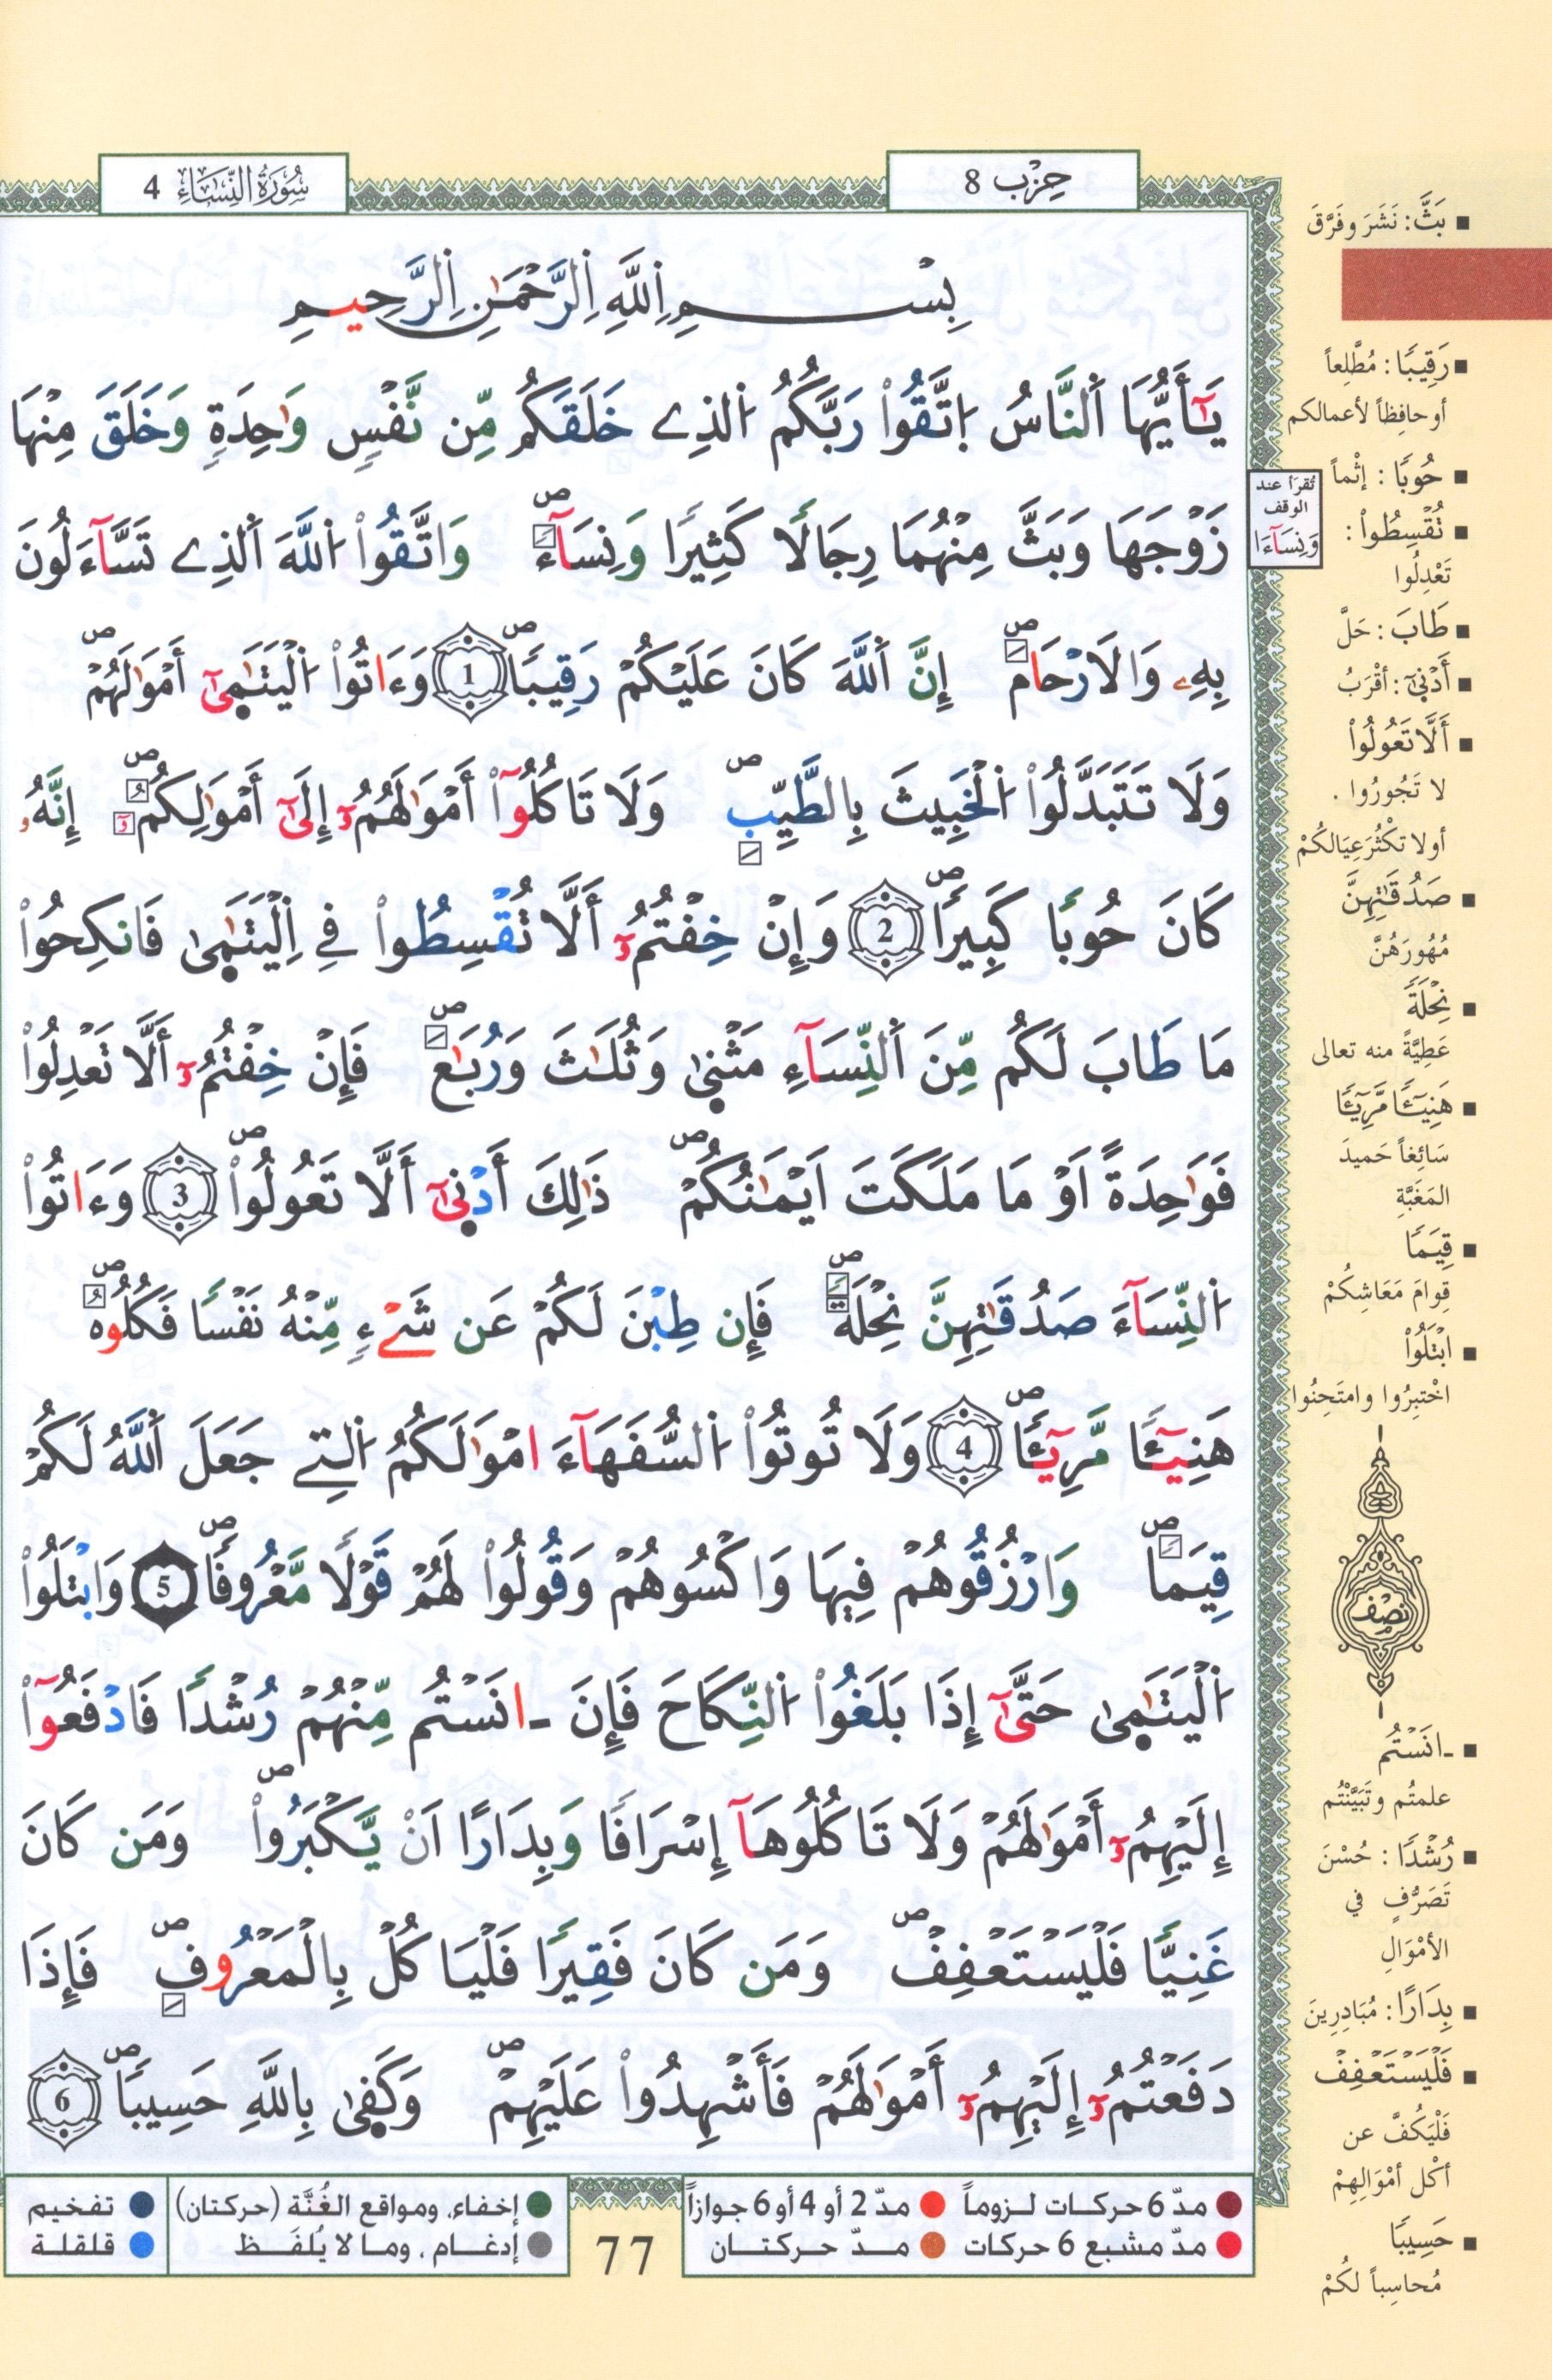 سُورَةُ النِّسَاءِ 4
حِزْب 8
بِسْمِ اِللَّهِ اِلرَّحْمَٰنِ اِلرَّحِيمِ
يَٰٓأَيُّهَا اَلنَّاسُ اُتَّقُواْ رَبَّكُمُ اُلذِے خَلَقَكُم مِّن نَّفْسٖ وَٰحِدَةٖ وَخَلَقَ مِنْهَا
زَوْجَهَا وَبَثَّ مِنْهُمَا رِجَالٗا كَثِيرٗا وَنِسَآءٗۖ وَاتَّقُواْ اُللَّهَ اَلذِے تَسَّآءَلُونَ
بِهِۦ وَالَارْحَامَۖ إِنَّ اَللَّهَ كَانَ عَلَيْكُمْ رَقِيباٗۖ 1 وَءَاتُواْ اُلْيَتَٰمَيٰٓ أَمْوَٰلَهُمْۖ
وَلَا تَتَبَدَّلُواْ اُلْخَبِيثَ بِالطَّيِّبِۖ وَلَا تَاكُلُوٓاْ أَمْوَٰلَهُمُۥٓ إِلَيٰٓ أَمْوَٰلِكُمُۥٓۖ إِنَّهُۥ
كَانَ حُوباٗ كَبِيراٗۖ 2 وَإِنْ خِفْتُمُۥٓ أَلَّا تُقْسِطُواْ فِے اِلْيَتَٰمَيٰ فَانكِحُواْ
مَا طَابَ لَكُم مِّنَ اَلنِّسَآءِ مَثْنَيٰ وَثُلَٰثَ وَرُبَٰعَۖ فَإِنْ خِفْتُمُۥٓ أَلَّا تَعْدِلُواْ
فَوَٰحِدَةً اَوْ مَا مَلَكَتَ اَيْمَٰنُكُمْۖ ذَٰلِكَ أَدْنَيٰٓ أَلَّا تَعُولُواْۖ 3 وَءَاتُواْ
اُلنِّسَآءَ صَدُقَٰتِهِنَّ نِحْلَةٗۖ فَإِن طِبْنَ لَكُمْ عَن شَےْءٖ مِّنْهُ نَفْساٗ فَكُلُوهُۖ
هَنِيٓـٔاٗ مَّرِيٓـٔاٗۖ 4 وَلَا تُوتُواْ اُلسُّفَهَآءَ اَمْوَٰلَكُمُ اُلتِے جَعَلَ اَللَّهُ لَكُمْ
قِيَماٗۖ وَارْزُقُوهُمْ فِيهَا وَاكْسُوهُمْ وَقُولُواْ لَهُمْ قَوْلٗا مَّعْرُوفاٗۖ 5 وَابْتَلُواْ
اُلْيَتَٰمَيٰ حَتَّيٰٓ إِذَا بَلَغُواْ اُلنِّكَاحَ فَإِنَ ـانَسْتُم مِّنْهُمْ رُشْداٗ فَادْفَعُوٓاْ
إِلَيْهِمُۥٓ أَمْوَٰلَهُمْ وَلَا تَاكُلُوهَآ إِسْرَافاٗ وَبِدَاراً اَنْ يَّكْبَرُواْۖ وَمَن كَانَ
غَنِيّاٗ فَلْيَسْتَعْفِفْۖ وَمَن كَانَ فَقِيراٗ فَلْيَاكُلْ بِالْمَعْرُوفِۖ فَإِذَا
دَفَعْتُمُۥٓ إِلَيْهِمُۥٓ أَمْوَٰلَهُمْ فَأَشْهِدُواْ عَلَيْهِمْۖ وَكَفَيٰ بِاللَّهِ حَسِيباٗۖ 6
تُقرَأ عند
الوقف
وَنِسَآءَا
▪ بَثَّ: نَشَرَ وفَرَّقَ
▪ رَقِيبٗا: مُطَّلِعاً
أو حافِظاً لأعمالكم
▪ حُوبٗا: إثْماً
▪ تُقْسِطُواْ:
تَعْدِلُوا
▪ طَابَ: حَلَّ
▪ أَدْنَيٰٓ: أقْرَبُ
▪ أَلَّا تَعُولُواْ
لا تَجُورُوا.
أولا تكْثُرَ عِيَالكُمْ
▪ صَدُقَٰتِهِنَّ
مُهُورَهُنَّ
▪ نِحْلَةٗ
عَطِيَّةً منه تعالى
▪ هَنِيٓـٔٗا مَّرِيٓـٔٗا
سَائِغاً حَميدَ
المَغَبَّةِ
▪ قِيَمٗا
قِوامَ مَعَاشِكُمْ
▪ ابْتَلُواْ
اخْتبِرُوا وامتَحِنُوا
نصف
▪ ـانَسْتُم
علمتُم وتَبَيَّنْتُم
▪ رُشْدٗا: حُسْنَ
تَصَرُّفٍ في
الأمْوَالِ
▪ بِدَارًا: مُبَادِرِينَ
▪ فَلْيَسْتَعْفِفْ
فَلْيَكُفَّ عن
أكْل أمْوَالِهِمْ
▪ حَسِيبٗا
مُحاسِباً لكُمْ
مدّ 6 حركـات لـزوماً
مدّ 2 أو 4 أو 6 جوازاً
مدّ مشبع 6 حركات
مـدّ حـركتـان
77
إخفاء، ومواقع الغُنَّة (حركتان)
تفخيم
إدغـام، ومـا لا يُلفَـظ
قلقلـة